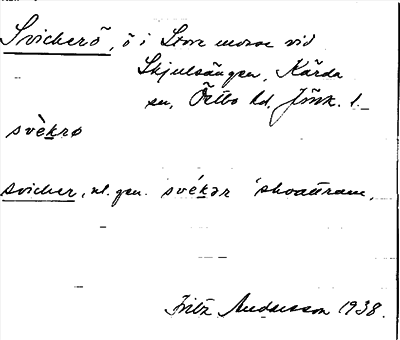 Svickerö, ö i Store mosse vid
Skjulsängen, Kärda
sn, Östbo hd, Jönk. l.
svèkrø
svicker, nl. gen. svékər 'skvattram,
Fritz Andersson 1938.